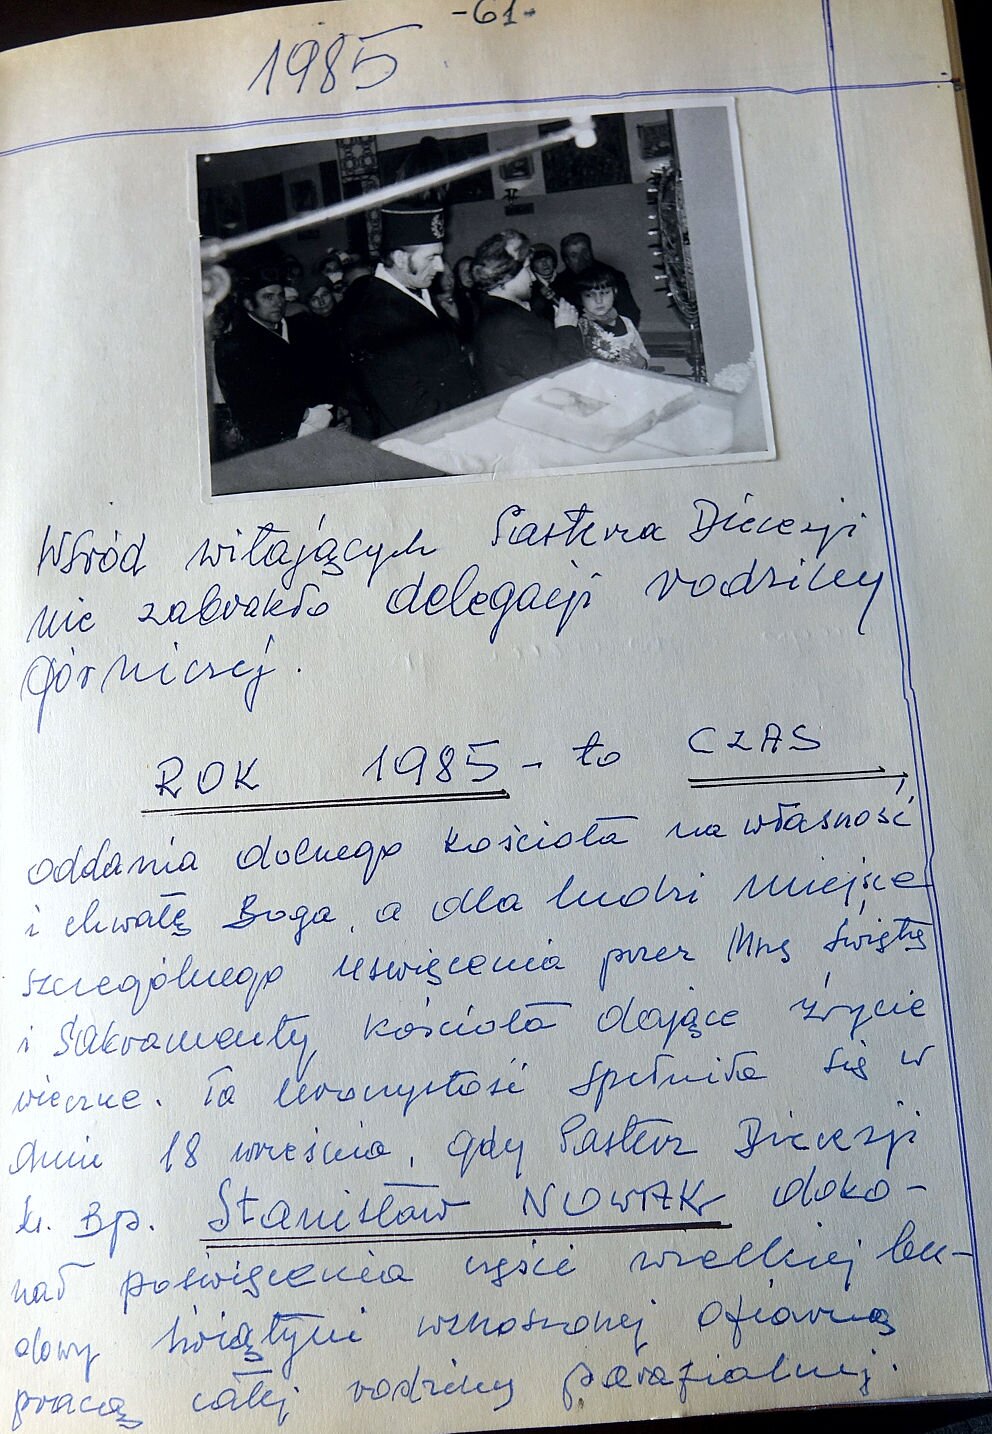 -61-
1985
Wśród witających Pasterza Diecezji
nie zabrakło delegacji rodziny
górniczej.
ROK 1985 - to CZAS
oddania dolnego kościoła na własność
i chwałę Boga, a dla ludzi miejsce
szczególnego uświęcenia przez Mszę Świętą
i Sakramenty kościoła dające życie
wieczne. Ta uroczystość spełniła się w
dniu 18 września, gdy Pasterz Diecezji
ks. Bp. Stanisław NOWAK doko-
nał poświęcenia części wielkiej bu-
dowy świątyni wznoszonej ofiarną
pracą całej rodziny parafialnej.